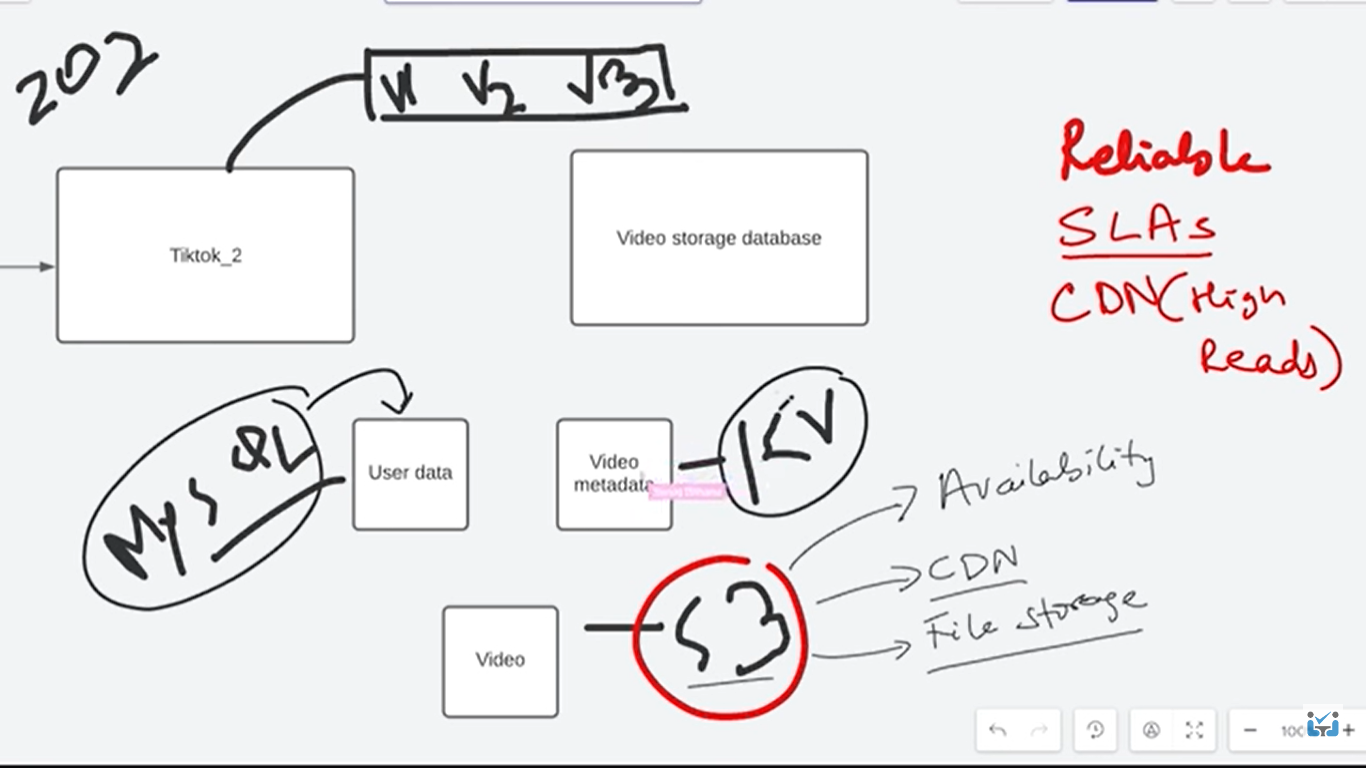 202
V1 V2 V3
Tiktok_2
Video storage database
Reliable
SLAs
CDN (High
Reads)
MySQL
User data
Video
metadata
KV
Availability
CDN
File storage
Video
S3
100